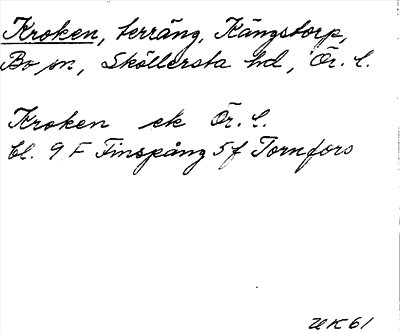 Kroken, terräng, Kängstorp,
Bo sn, Sköllersta hd, Ör. l.
Kroken ek Ör. l.
bl. 9 F Finspång 5f Tornfors
UK61